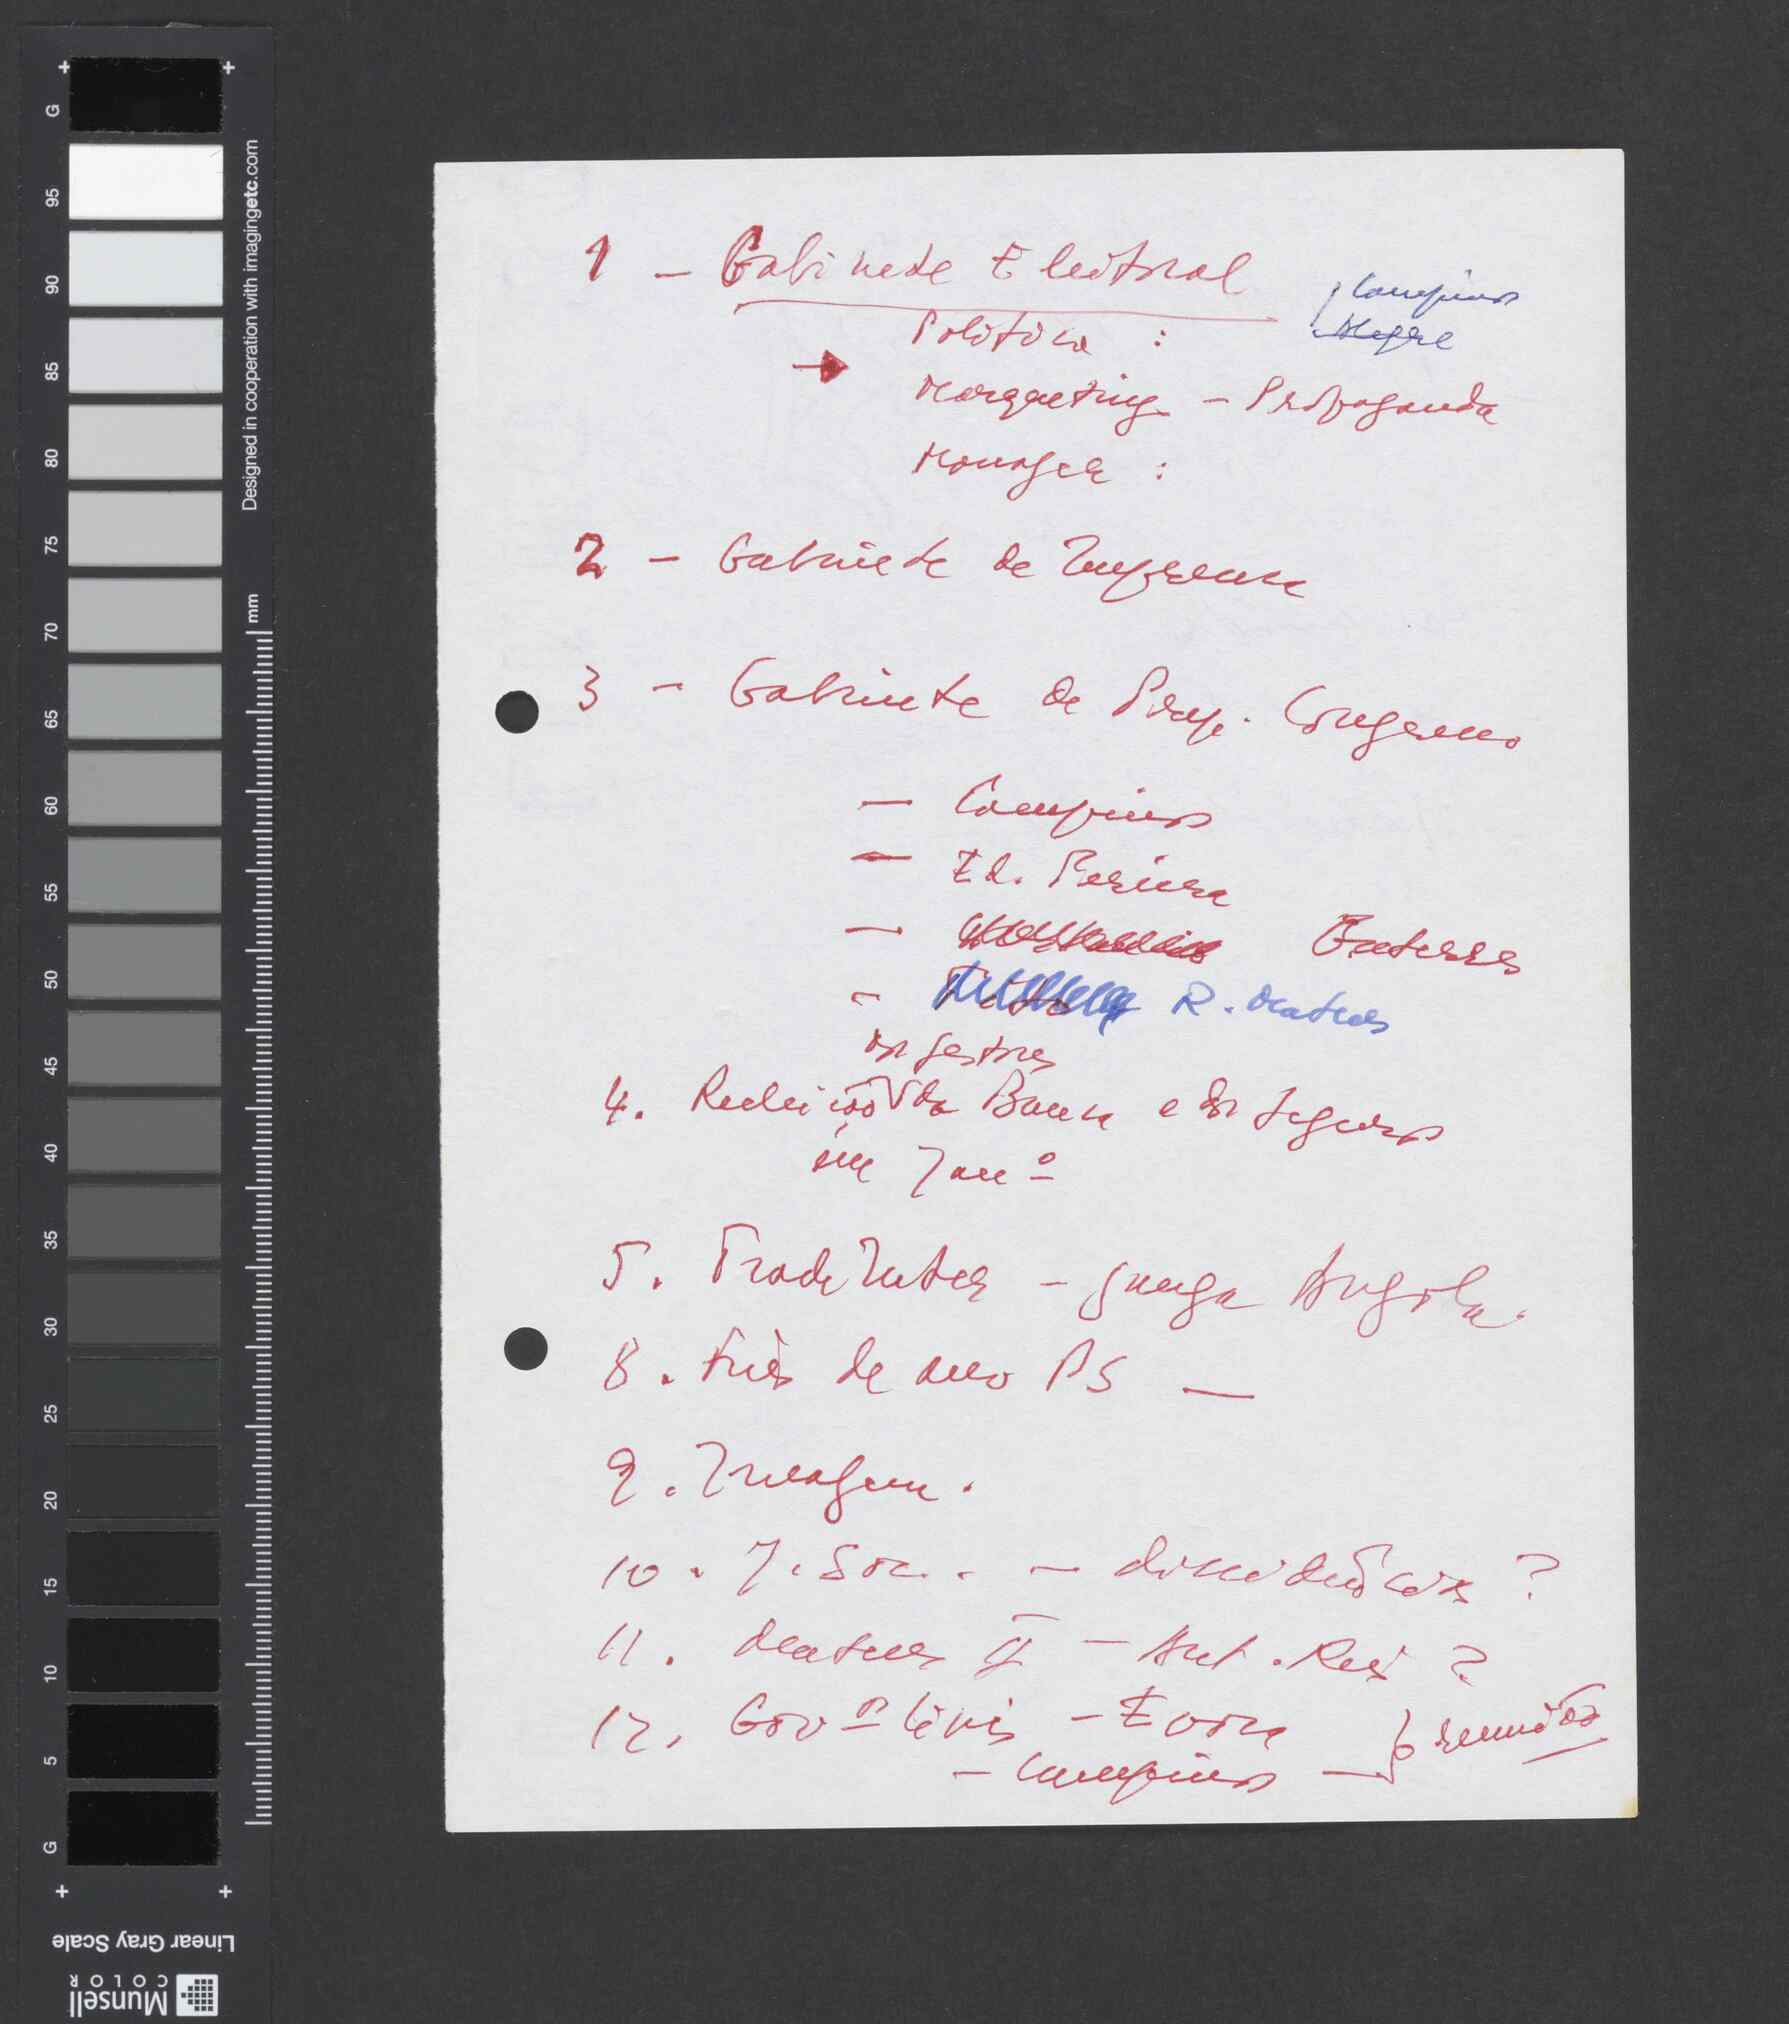 1 - Gabinete Eleitoral
{ Campinos
Alegre
Politica :
→ Marqueting - Propaganda
Manager :
2 - Gabinete de Imprensa
3 - Gabinete de Prep. Congresso
- Campinos
- Ed. Pereira
- Guterres
- R. Mateus
os gestores
4. da Banca e dos Seguros
em Janº
5. Trade Inter - Angola.
8. de ano PS -
9. Imagem.
10. J. Soc. - dissidências ?
11. Mateus II - Ant. Reis ?
12. Govº Civis - Evora
- Campinos - } reunião
G
95
90
85
80
75
70
65
60
55
50
45
40
35
30
25
20
15
10
5
G
Designed in cooperation with imagingetc.com
mm
Linear Gray Scale
Munsell
COLOR